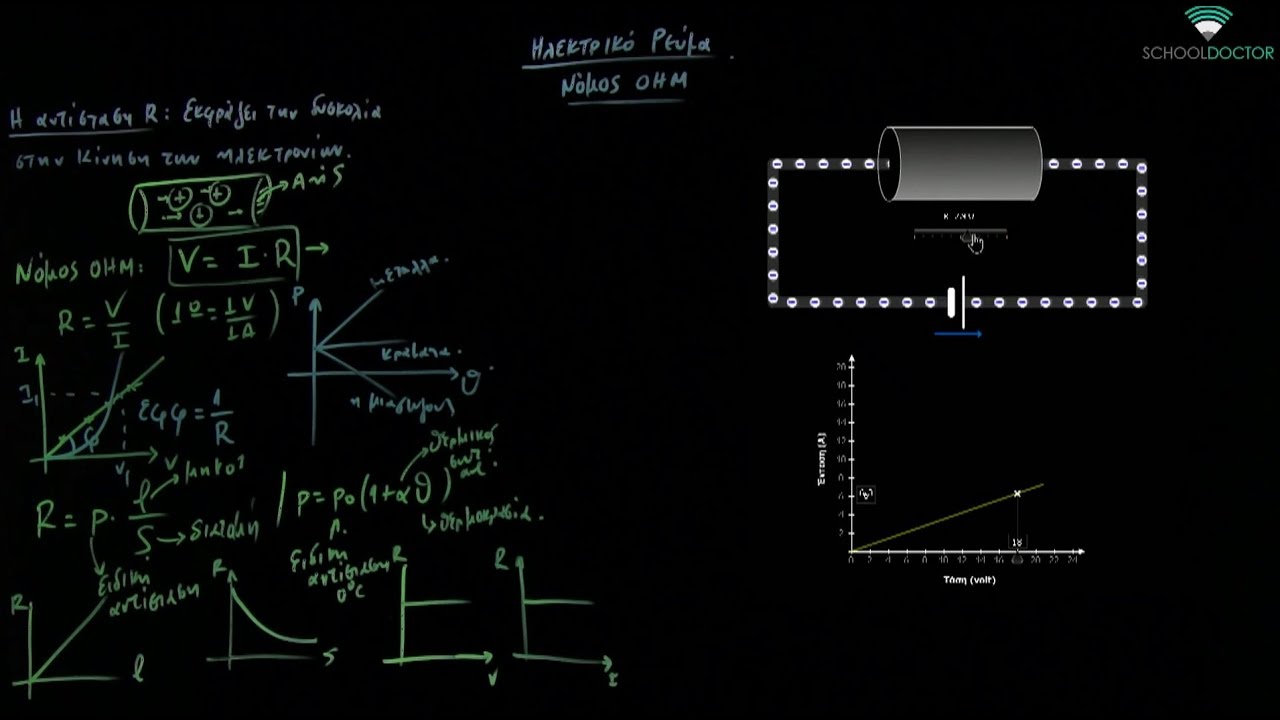 Ηλεκτρικό Ρεύμα
Νόμος ΟΗΜ
SCHOOLDOCTOR
Η αντίσταση R: Εκφράζει την δυσκολία
στην κίνηση των ηλεκτρονίων.
Α ή S
Νόμος ΟΗΜ: V = I · R
R = V/I (1Ω = 1V/1A)
I
I₁
V₁ V
εφφ = 1/R
φ
ρ
μέταλλα.
κράματα.
ημιαγωγοί
θ
R = ρ · l/S
μήκος
διατομή
ειδική
αντίσταση
ρ = ρ₀(1 + αθ)
θερμικός
συντ.
θερμοκρασία.
ειδική
αντίσταση
0°C
R
l
R
S
R
V
R
I
Ένταση (Α)
20
18
16
14
12
10
8
6
4
2
18
0 2 4 6 8 10 12 14 16 18 20 22 24
Τάση (volt)